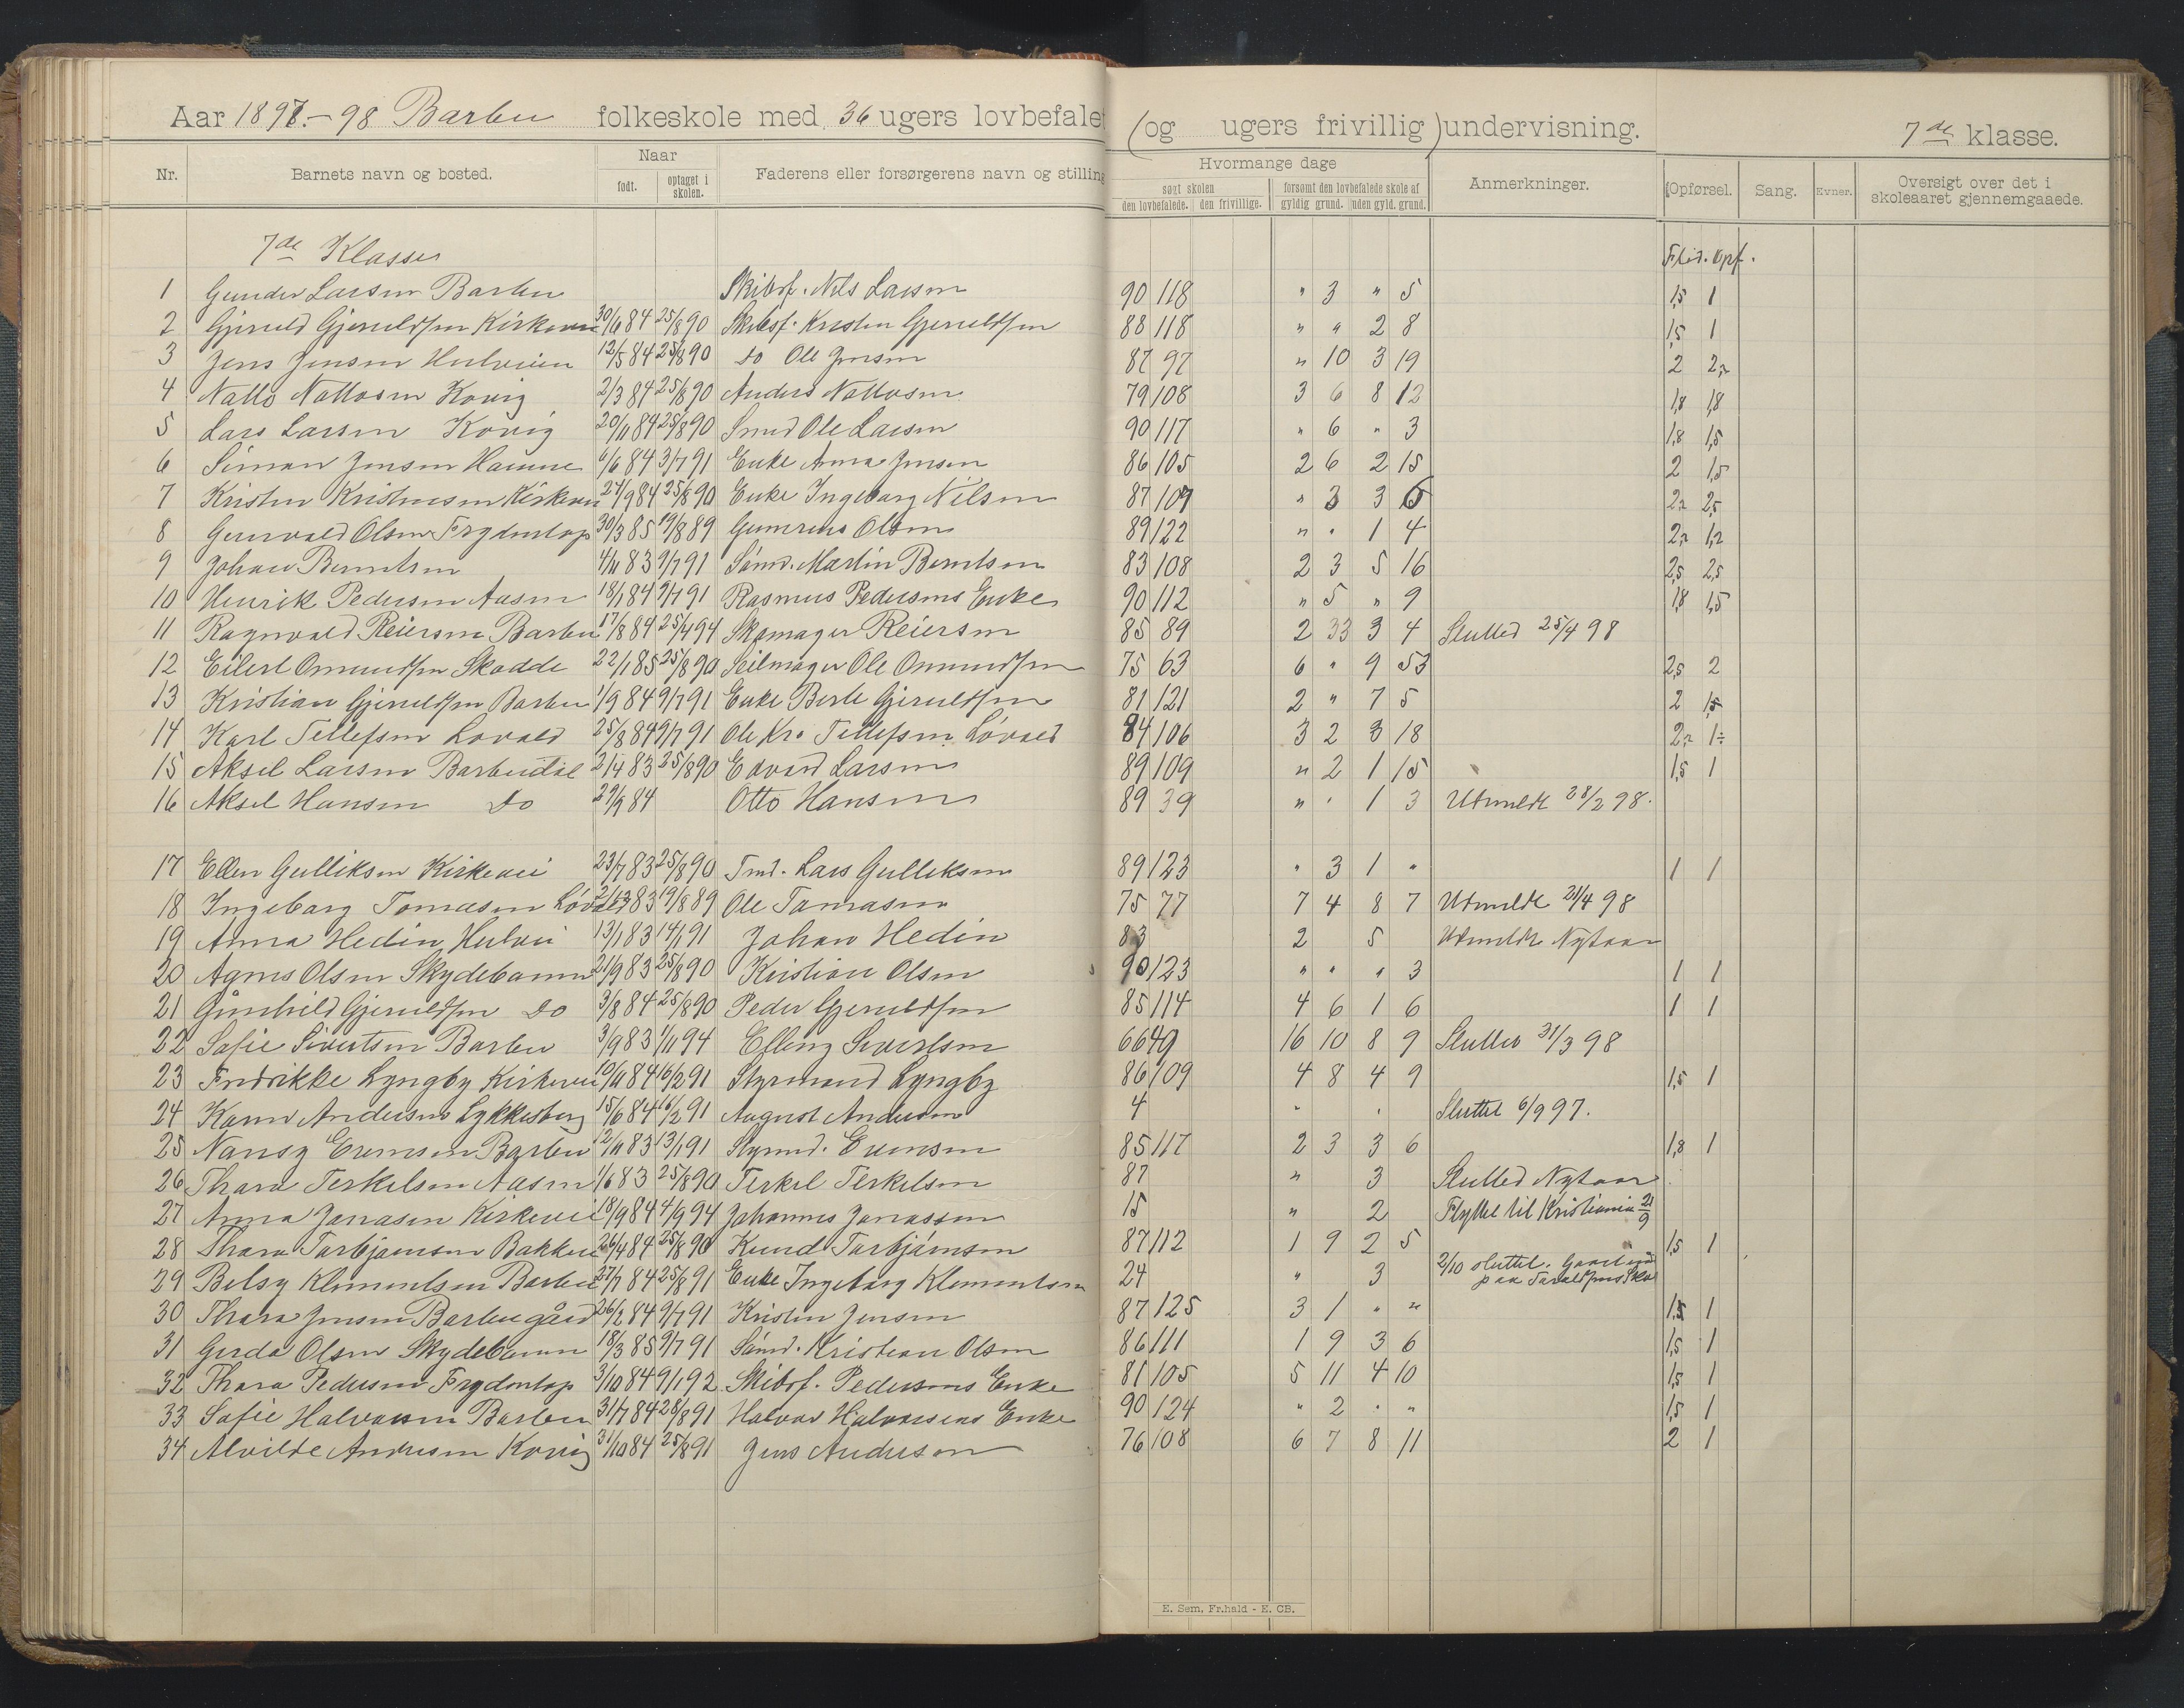 Aar 1897.-98 Barbu folkeskole med 36 ugers lovbefalet (og ugers frivillig) undervisning. 7de klasse.
Nr. Barnets navn og bosted. Naar født. optaget i skolen. Faderens eller forsørgerens navn og stilling Hvormange dage søgt skolen den lovbefalede. den frivillige. forsømt den lovbefalede skole af gyldig grund. uden gyld. grund. Anmerkninger. Opførsel. Sang. Evner. Oversigt over det i skoleaaret gjennemgaaede.
7de Klasse Flid. Opf.
1 Gunder Larsen Barbu Skibsf. Nils Larsen 90 118 " 3 " 5 1,5 1
2 Gjeruld Gjeruldsen Kirkevei 30/6 84 25/8 90 Skibsf. Kristen Gjeruldsen 88 118 " " 2 8 1,5 1
3 Jens Jensen Hulveien 12/5 84 25/8 90 do Ole Jensen 87 97 " 10 3 19 2
4 Kovig 2/3 84 25/8 90 Anders 79 108 3 6 8 12 1,8 1,8
5 Lars Larsen Kovig 20/11 84 25/8 90 Smed Ole Larsen 90 117 " 6 " 3 1,8 1,5
6 Simon Jensen 6/6 84 3/7 91 Enke Anna Jensen 86 105 2 6 2 15 2 1,5
7 Kristen Kristensen Kirkevei 24/9 84 25/8 90 Enke Ingeborg Nilsen 87 109 " 3 3 6 2,5
8 Olsen 30/3 85 19/8 89 Olsen 89 122 " " 1 4 1,2
9 Johan Berntsen 4/11 83 9/7 91 Sømd. Martin Berntsen 83 108 2 3 5 16 2,5 2,5
10 Henrik Pedersen Aasen 18/1 84 9/7 91 Rasmus Pedersens Enke 90 112 " 5 " 9 1,8 1,5
11 Ragnvald Reiersen Barbu 17/8 84 25/4 94 Skomager Reiersen 85 89 2 33 3 4 Sluttet 25/4 98
12 Eilert Omundsen Skodde 22/1 85 25/8 90 Seilmager Ole Omundsen 75 63 6 " 9 53 2,5 2
13 Kristian Gjeruldsen Barbu 1/9 84 9/7 91 Enke Berte Gjeruldsen 81 121 2 " 7 5 2 1,5
14 Karl Tellefsen Løvold 25/8 84 9/7 91 Ole Kr. Tellefsen Løvold 84 106 3 2 3 18
15 Aksel Larsen Barbudal 2/4 83 25/8 90 Edvard Larsen 89 109 " 2 1 15 1,5 1
16 Aksel Hansen do 29/9 84 Otto Hansen 89 39 " " 1 3 Udmeldt 28/2 98.
17 Ellen Gulliksen Kirkevei 23/7 83 25/8 90 Tmd. Lars Gulliksen 89 123 " 3 1 " 1 1
18 Ingeborg Tomasen Løvold 83 19/8 89 Ole Tomasen 75 77 7 4 8 7 Udmeldt 21/4 98
19 Anna Hedin Hulvei 13/1 83 14/1 91 Johan Hedin 83 2 5 Udmeldt Nytaar
20 Agnes Olsen Skydebanen 21/9 83 25/8 90 Kristian Olsen 90 123 " " " 3 1 1
21 Gunhild Gjeruldsen do 3/8 84 25/8 90 Peder Gjeruldsen 85 114 4 6 1 6 1 1
22 Sofie Sivertsen Barbu 3/9 83 1/11 94 Elling Sivertsen 66 49 16 10 8 9 Sluttet 31/3 98
23 Fredrikke Lyngby Kirkevei 10/11 84 16/2 91 Styrmand Lyngby 86 109 4 8 4 9 1,5 1
24 Andersen Lykkesberg 15/6 84 16/2 91 August Andersen 4 " " Sluttet 6/9 97.
25 Nansy Evensen Barbu 12/11 83 13/1 91 Styrmd. Evensen 85 117 2 3 3 6 1,8 1
26 Thara Terkelsen Aasen 1/6 83 25/8 90 Terkel Terkelsen 87 " 3 Sluttet Nytaar
27 Anna Jonasen Kirkevei 18/9 84 4/9 94 Johannes Jonassen 15 " 2 Flyttet til Kristiania 21/9
28 Thara Torbjørnsen Bakken 26/4 84 25/8 90 Knud Torbjørnsen 87 112 1 9 2 5 1,5 1
29 Betsy Klementsen Barbu 27/7 84 25/8 91 Enke Ingeborg Klementsen 24 " 3 2/10 sluttet.
30 Thara Jensen Barbugård 26/2 84 9/7 91 Kristen Jensen 87 125 3 1 " " 1,5 1
31 Gerda Olsen Skydebanen 18/3 85 9/7 91 Sømd. Kristian Olsen 86 111 1 9 3 6 1,5 1
32 Thara Pedersen 3/10 84 9/1 92 Skibsf. Pedersens Enke 81 105 5 11 4 10 1,5 1
33 Sofie Halvorsen Barbu 31/7 84 28/8 91 Halvor Halvorsens Enke 90 124 " 2 " " 1,5 1
34 Alvilde Andersen Kovig 31/10 84 25/8 91 Jens Andersen 76 108 6 7 8 11 2 1
E. Sem, Fr.hald - E. CB.